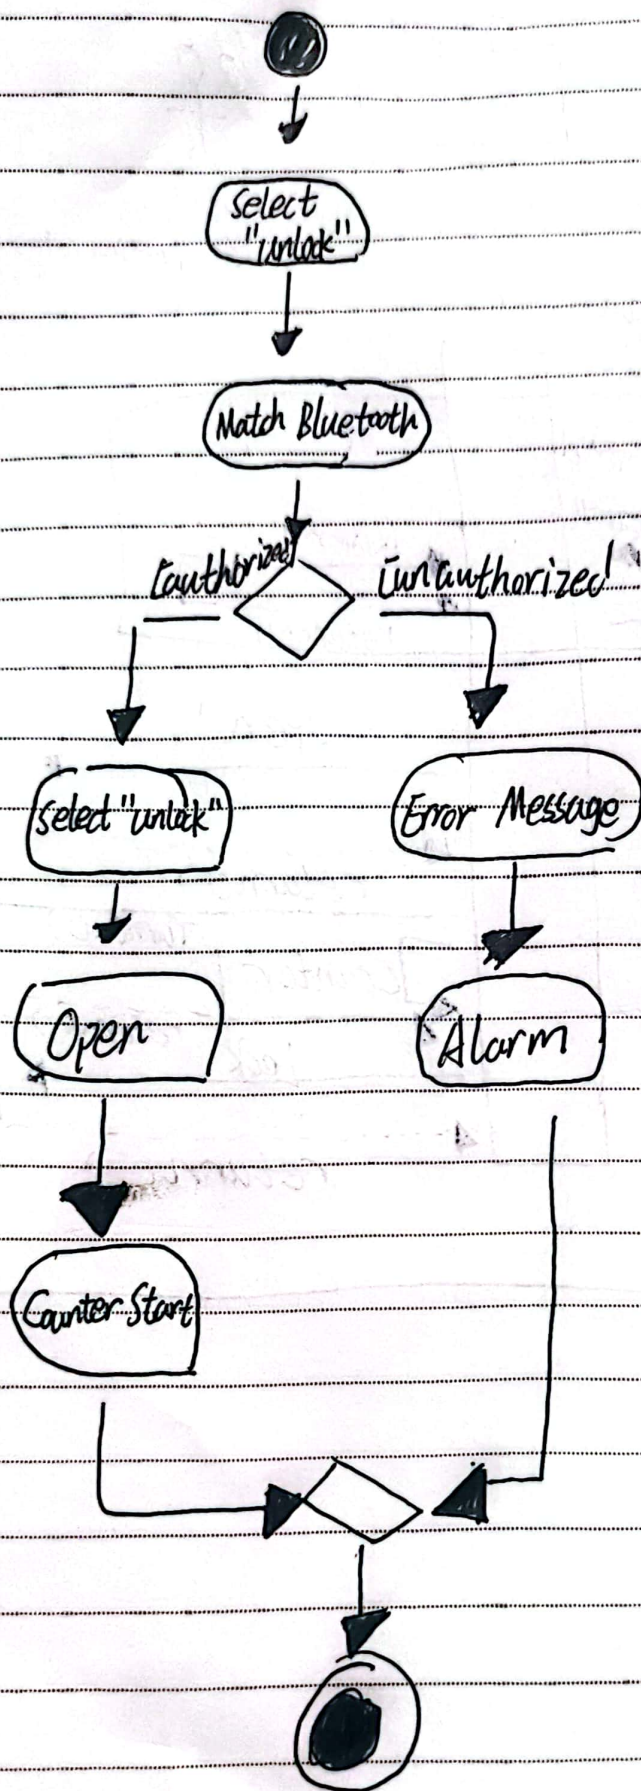 Select
"unlock"
Match Bluetooth
[authorized]
[unauthorized]
Select "unlock"
Error Message
Open
Alarm
Counter Start